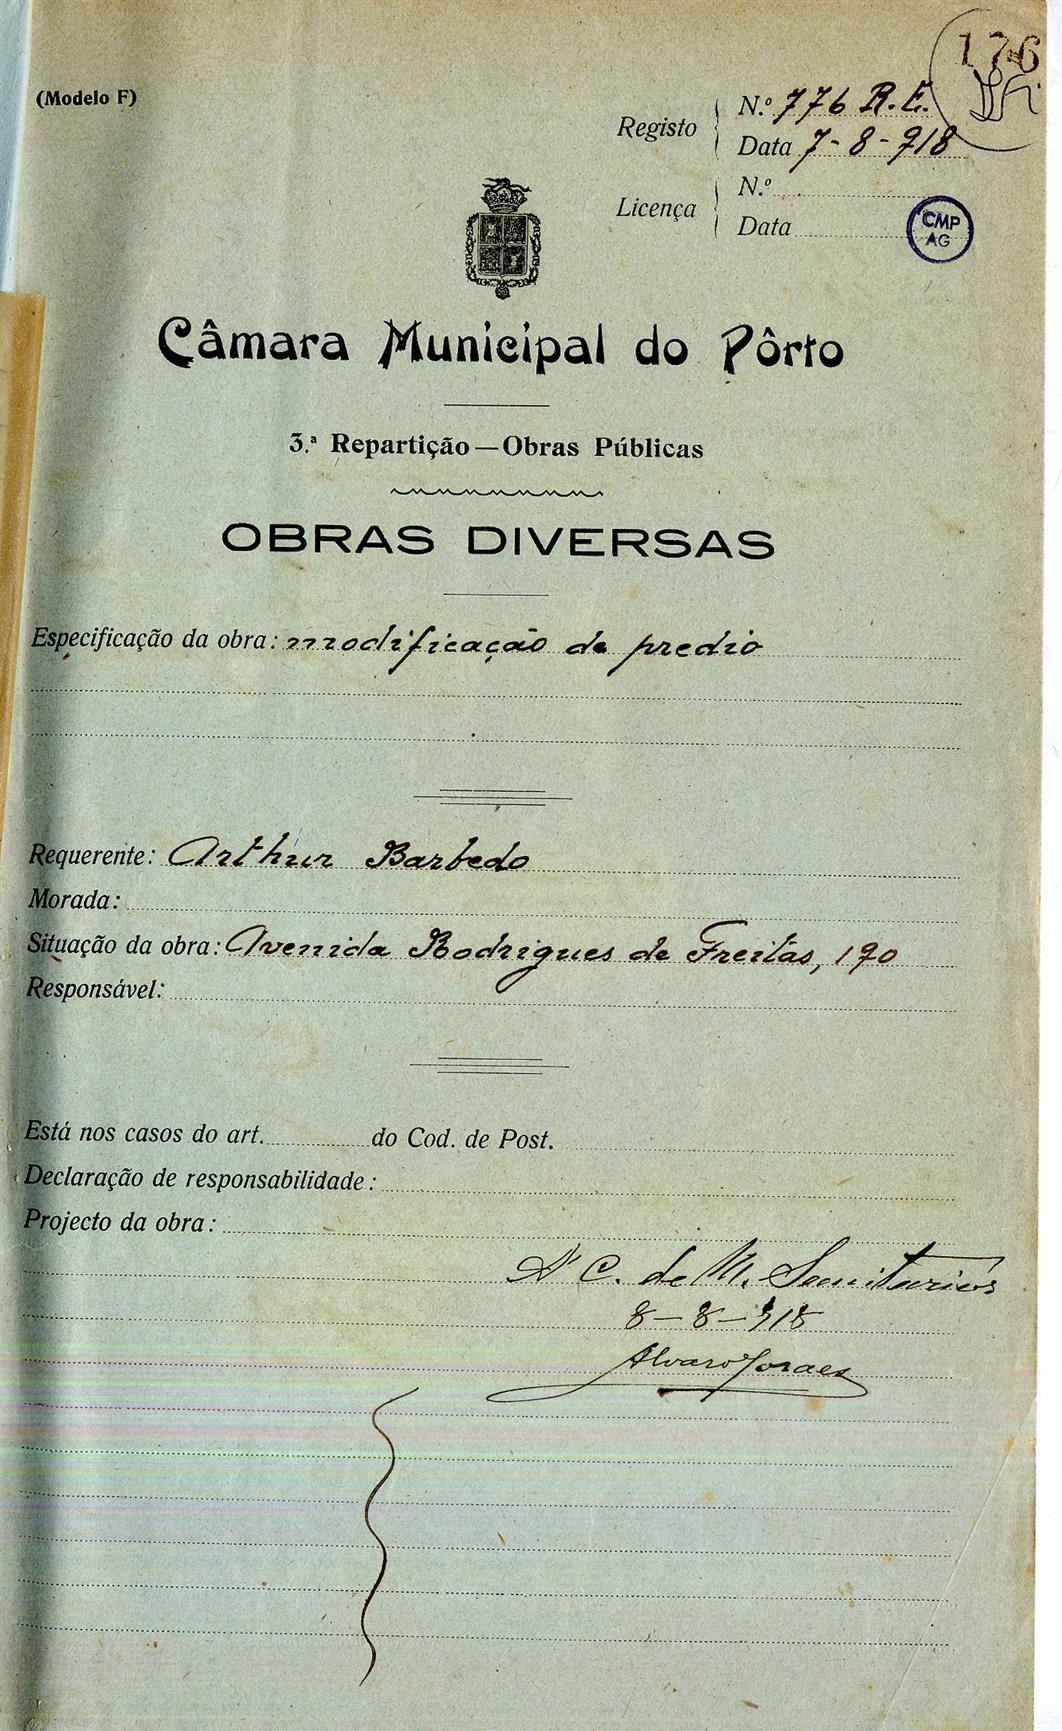 176
(Modelo F)
Registo
N.º 776 R.E.
Data 7-8-918
Licença
N.º
Data
CMP
AG
Câmara Municipal do Pôrto
3.ª Repartição—Obras Públicas
OBRAS DIVERSAS
Especificação da obra: modificação de predio
Requerente: Arthur Barbedo
Morada:
Situação da obra: Avenida Rodrigues de Freitas, 190
Responsável:
Está nos casos do art. do Cod. de Post.
Declaração de responsabilidade:
Projecto da obra:
Á C. de M. Sanitarios
8-8-918